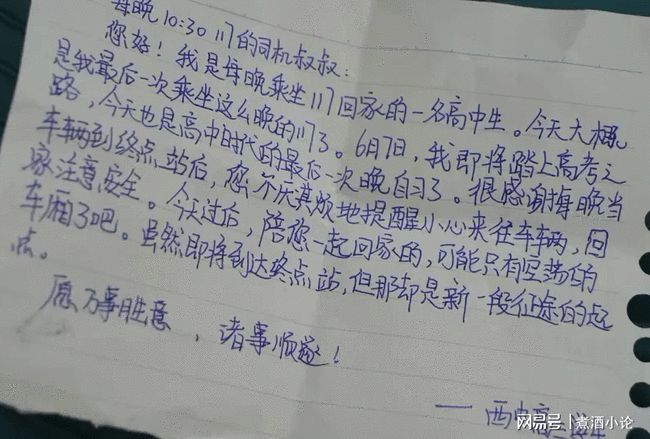 每晚10:30 117的司机叔叔：
您好！我是每晚乘坐117回家的一名高中生。今天大概
是我最后一次乘坐这么晚的117了。6月7日，我即将踏上高考之
路，今天也是高中时代的最后一次晚自习了。很感谢每晚当
车辆到终点站后，您不厌其烦地提醒小心来往车辆，回
家注意安全。今天过后，陪您一起回家的，可能只有空荡的
车厢了吧。虽然即将到达终点站，但那却是新一段征途的起
点。
愿万事胜意、诸事顺遂！
——西中高三学生
网易号|煮酒小论